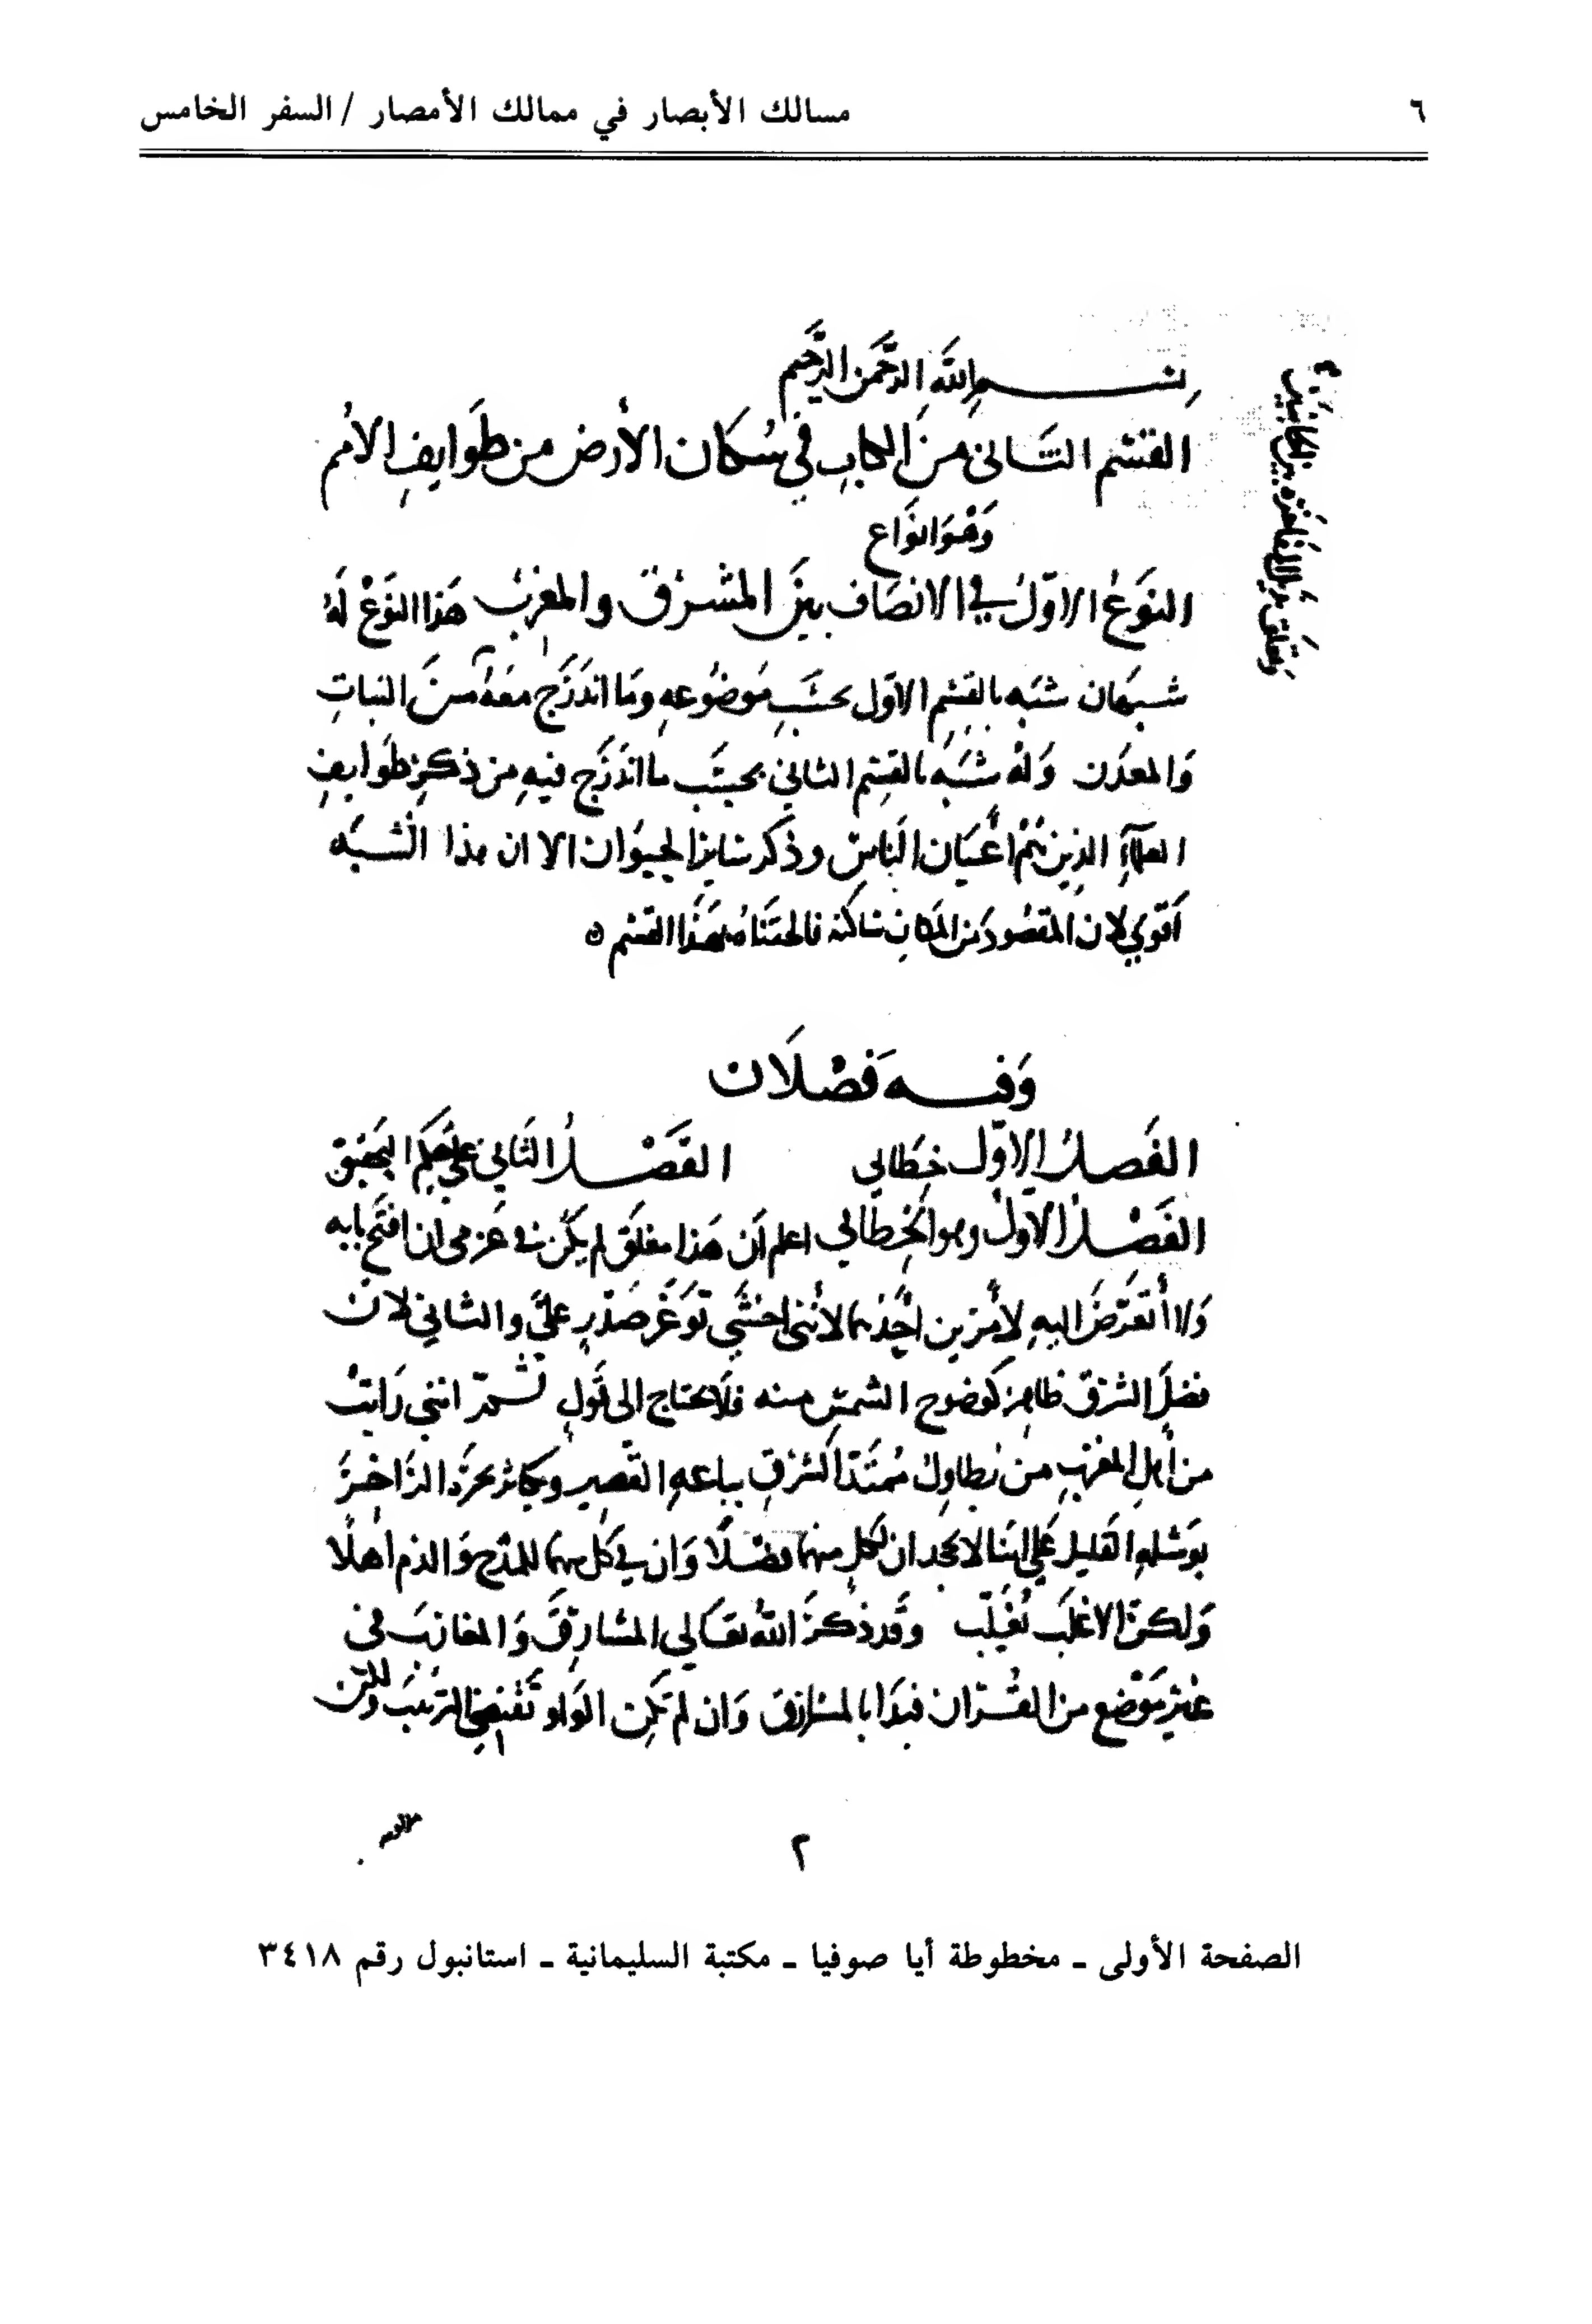 ٦
مسالك الأبصار في ممالك الأمصار / السفر الخامس
بسم الله الرَّحمن الرَّحيم
القسْم الثَّاني منَ الكتابِ في سُكان الأرض من طَوايفِ الاُمم
وَهْوَ انوَاع
النوَعُ الاوّلُ في الانصَاف بينَ المشْرق والمغرب هَذا النَوعْ لهُ
شبهان شبَه بالقسْمِ الاوّل بحسَبِ مَوضُوعهِ ومَا اندَرَج معَهُ منَ النباتِ
وَالمعدَن وَلهُ شبَه بالقِسْم الثاني بحسَب ما اندَرَج فيهِ من ذكرِ طَوايفِ
العلماءِ الذين هُمْ أعْيَان الناسِ وذكر سَاير الحيوَان الا ان هذا الشبَه
اقوي لان المقصُود من المكانِ سَاكنه فالحقنَاهُ بهَذا القسْم ه
وَفيه فَصْلَان
الفَصلُ الاوّل خطَابي الفَصْلُ الثَاني علي حُكم التحقيق
الفَصْلُ الاولُ وهو الخِطَابي اعلم أن هَذا مغلَق لم يكُن في عَزمي ان افتَح بابه
وَلا أتعَرّضَ اليهِ لأمرَين احَدهما لأننى اخشَي تَوَغّر صَدْرٍ عليّ والثاني لان
فضلَ الشرق ظاهر كوضوح الشمس منه فلَا يحتاج الى قولٍ ثم اننى رَايتُ
من أهلِ المغرب من يُطاولُ مُمتَدّ الشرقِ بباعهِ القَصير ويكاثر بحرَه الزاخرَ
بوَشلهِ القليل علي اننا لا نجد ان لكلٍ منهما فضلًا وَان في كل منهما للمَدْح وَالذم اهلًا
وَلكنّ الاغلَب يُغَلّب وقد ذكرَ اللهُ تعَالي المشَارقَ وَالمغاربَ في
غيرْ مَوْضع من القُرْان فبَدَا بالمشارق وَان لم تكُن الوَاو تَقتضي الترتيبَ ولكن
٢
الصفحة الأولى ـ مخطوطة أيا صوفيا ـ مكتبة السليمانية ـ استانبول رقم ٣٤١٨